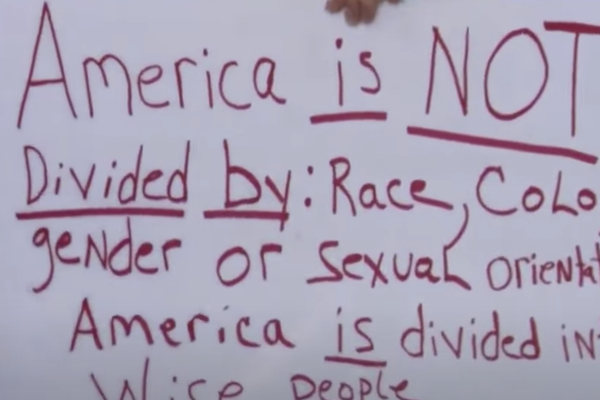 America is NOT
Divided by: Race, Colo
gender or sexual orientat
America is divided in
Wise people